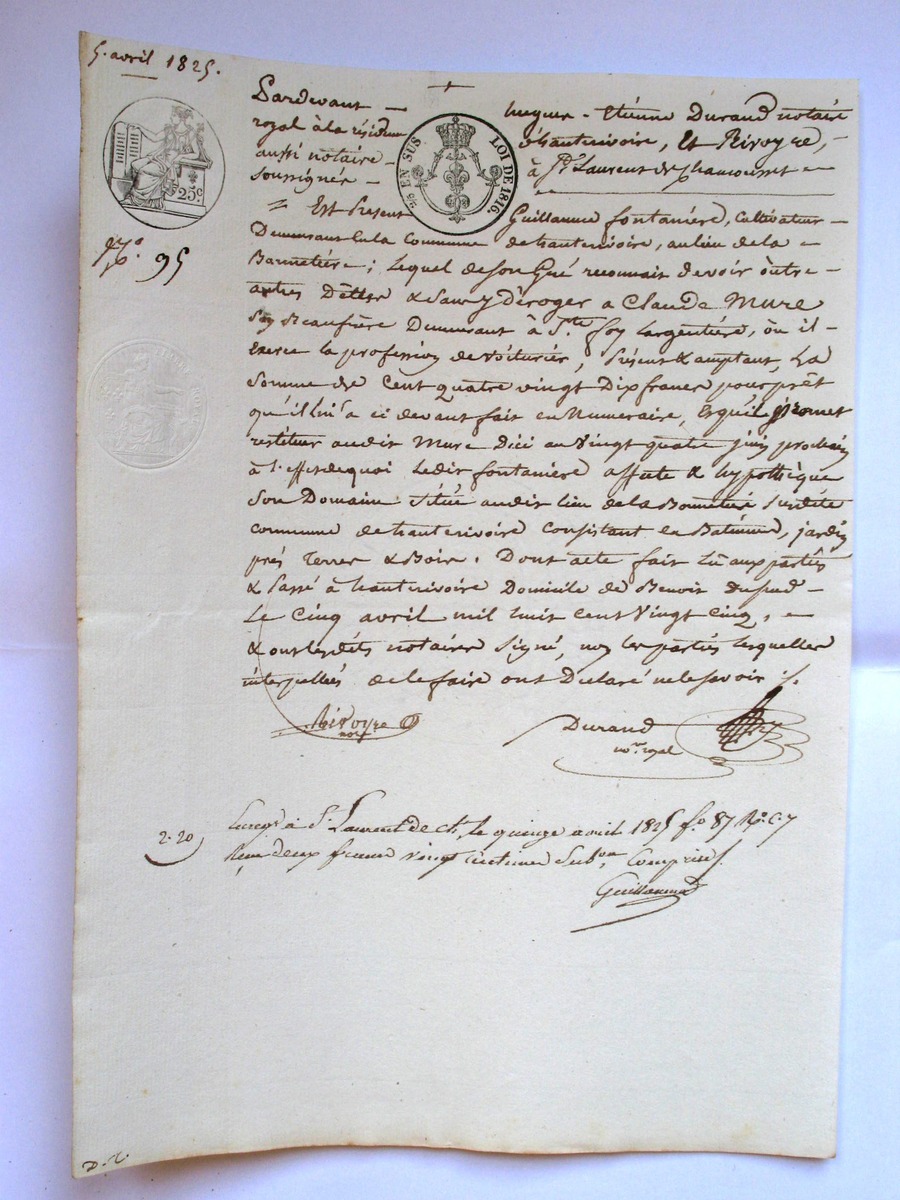 5. avril 1825.
Pardevant hugues - Etienne Durand notaire
royal à la résidence d'hauterivoire, et Rivoyre,
aussi notaire à St. Laurent de Chamousset
soussignés
25c.
EN SUS LOI DE 1816.
Est Présent Guillaume fontanière, cultivateur
N.° 95
Demeurant en la Commune de hauterivoire, au lieu de la
Bonnetière ; lequel de son gré reconnait devoir outre
autres Dettes & sans y Déroger a Claude Mure
Son Beaufrère Demeurant à Ste. foy Largentière, où il
Exerce la profession de voiturier, présent & acceptant, La
Somme de Cent quatre vingt Dix francs pour prêt
qu'il lui a ci devant fait en Numeraire, Et qu'il promet
restituer audit Mure D'ici au vingt quatre juin prochain
à l'effet de quoi Ledit fontanière affecte & hypothèque
Son Domaine Situé audit lieu de la Bonnetière Susdite
commune de hauterivoire Consistant en Batiment, jardin
prés Terres & Bois. Dont acte fait Lu aux parties
& Passé à hauterivoire Domicile de Benoit
Le Cinq avril mil huit cent vingt cinq,
& ont lesdits notaires Signé, non les parties lesquelles
interpellées de le faire ont Declaré ne le savoir ./.
Rivoyre
not
Durand
not. royal
2.20
Enregé à St. Laurent de ch. le quinze avril 1825 f.° 87 R.° c. 7
Reçu deux francs vingt centimes Subon. Compris.
Guillermet
D. D.